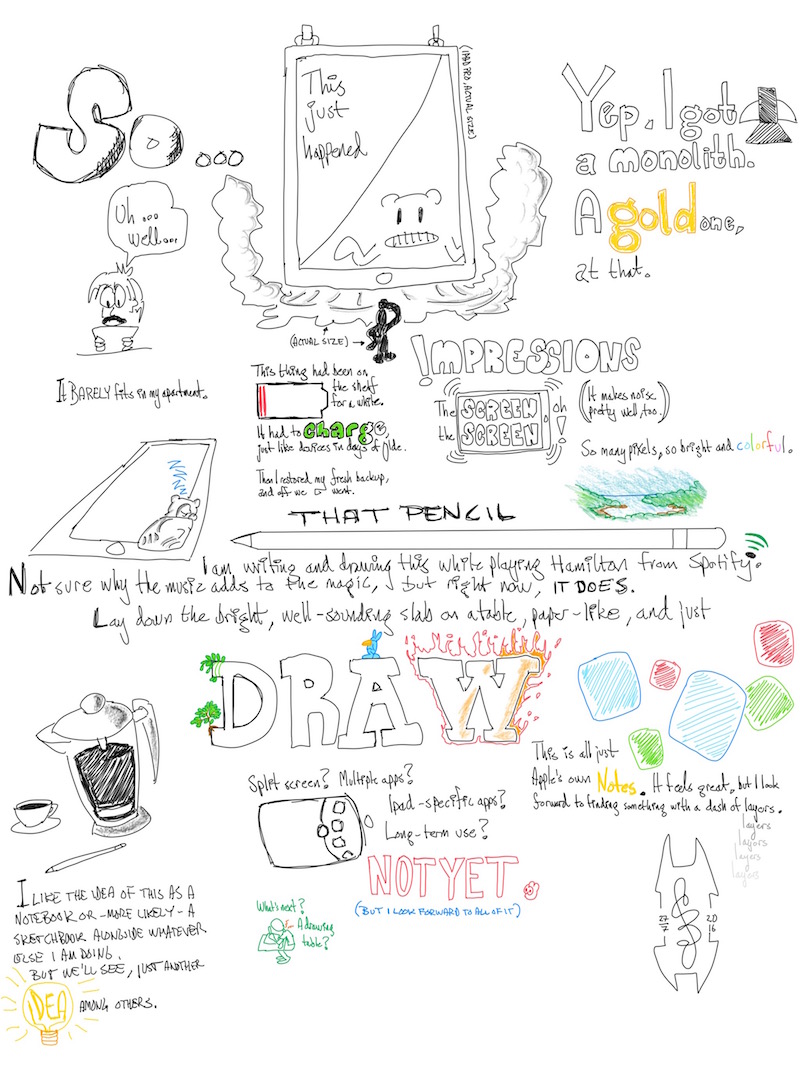 So...
This
just
happened
(IPAD PRO, ACTUAL SIZE)
Yep. I got
a monolith.
A gold one,
at that.
Uh...
well...
It BARELY fits in my apartment.
(ACTUAL SIZE)
!MPRESSIONS
This thing had been on
the shelf
for a while.
It had to charge,
just like devices in days of olde.
Then I restored my fresh backup,
and off we went.
The SCREEN, oh
the SCREEN!
(It makes noise
pretty well, too.)
So many pixels, so bright and colorful.
THAT PENCIL
I am writing and drawing this while playing Hamilton from Spotify.
Not sure why the music adds to the magic, but right now, IT DOES.
Lay down the bright, well-sounding slab on a table, paper-like, and just
DRAW
This is all just
Apple's own Notes. It feels great, but I look
forward to finding something with a dash of layers.
layers
layers
layers
layers
Split screen? Multiple apps?
Ipad-specific apps?
Long-term use?
NOT YET.
(BUT I LOOK FORWARD TO ALL OF IT)
What's next?
A drawing
table?
I LIKE THE IDEA OF THIS AS A
NOTEBOOK OR -MORE LIKELY- A
SKETCHBOOK ALONGSIDE WHATEVER
ELSE I AM DOING.
BUT WE'LL SEE, JUST ANOTHER
IDEA AMONG OTHERS.
27 20
7 16